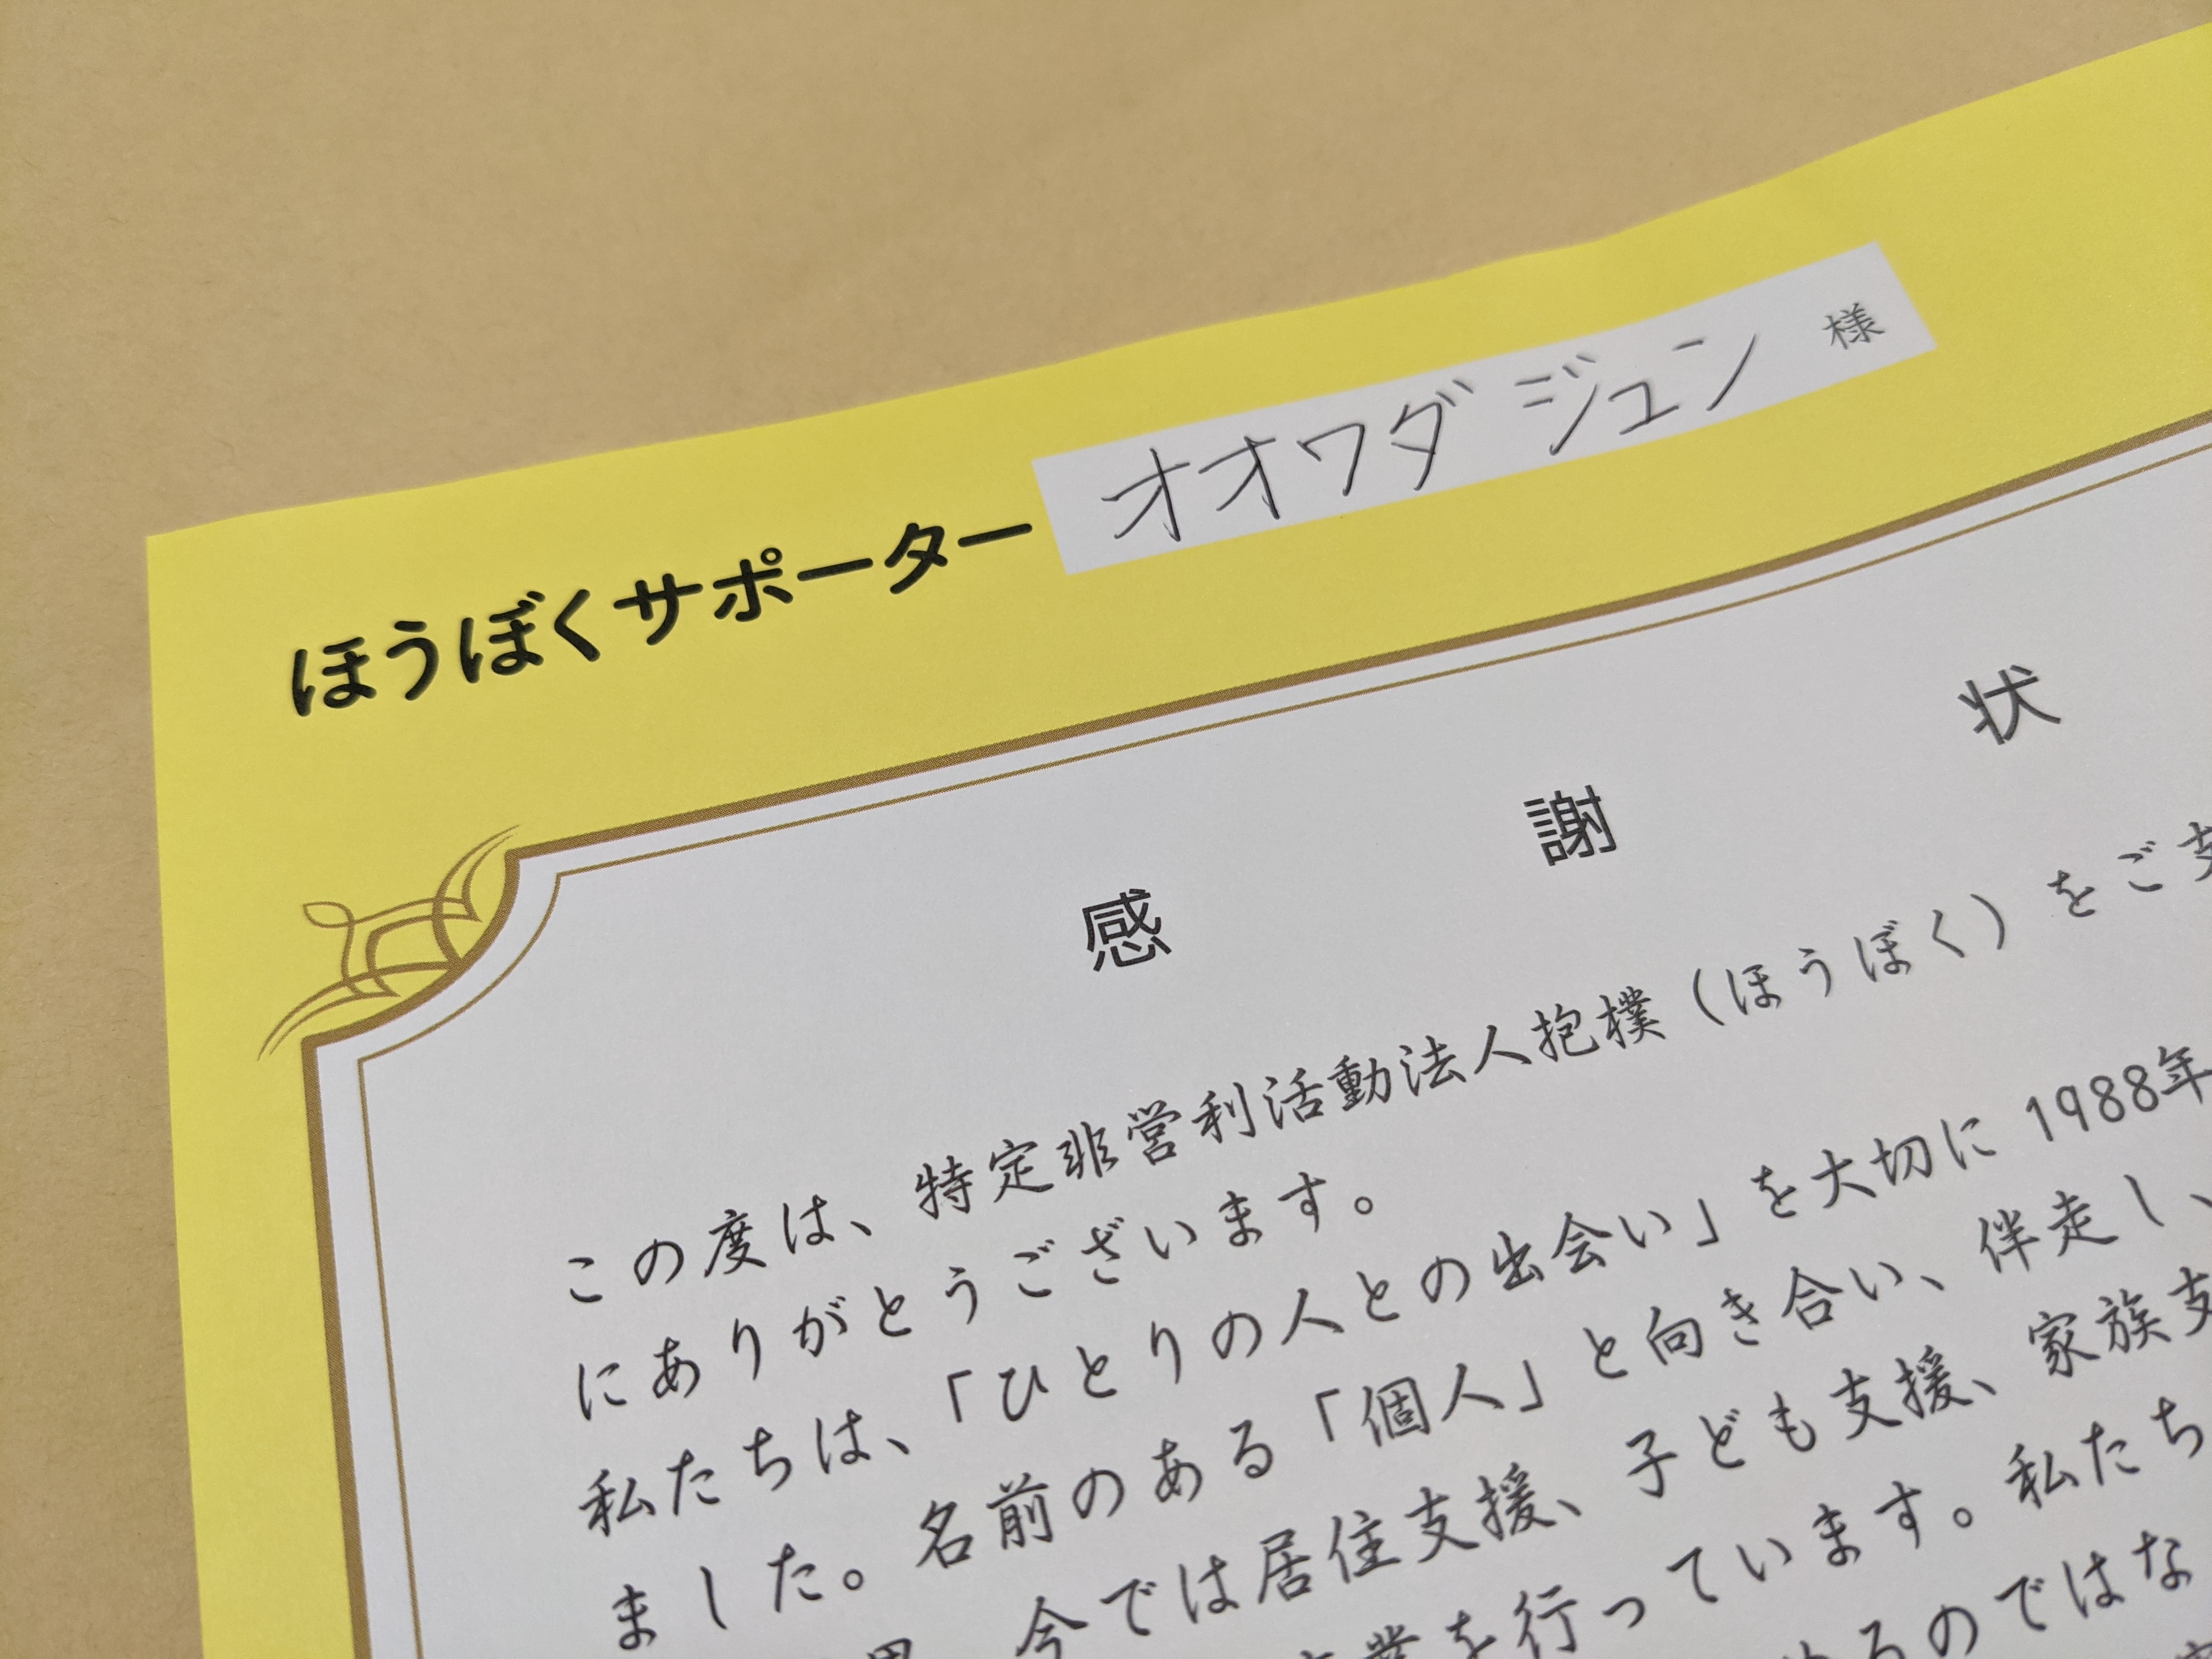 ほうぼくサポーター オオワダ ジュン 様
感謝状
この度は、特定非営利活動法人抱樸（ほうぼく）をご支
にありがとうございます。
私たちは、「ひとりの人との出会い」を大切に 1988年
ました。名前のある「個人」と向き合い、伴走し、
今では居住支援、子ども支援、家族支
業を行っています。私たち
るのではな